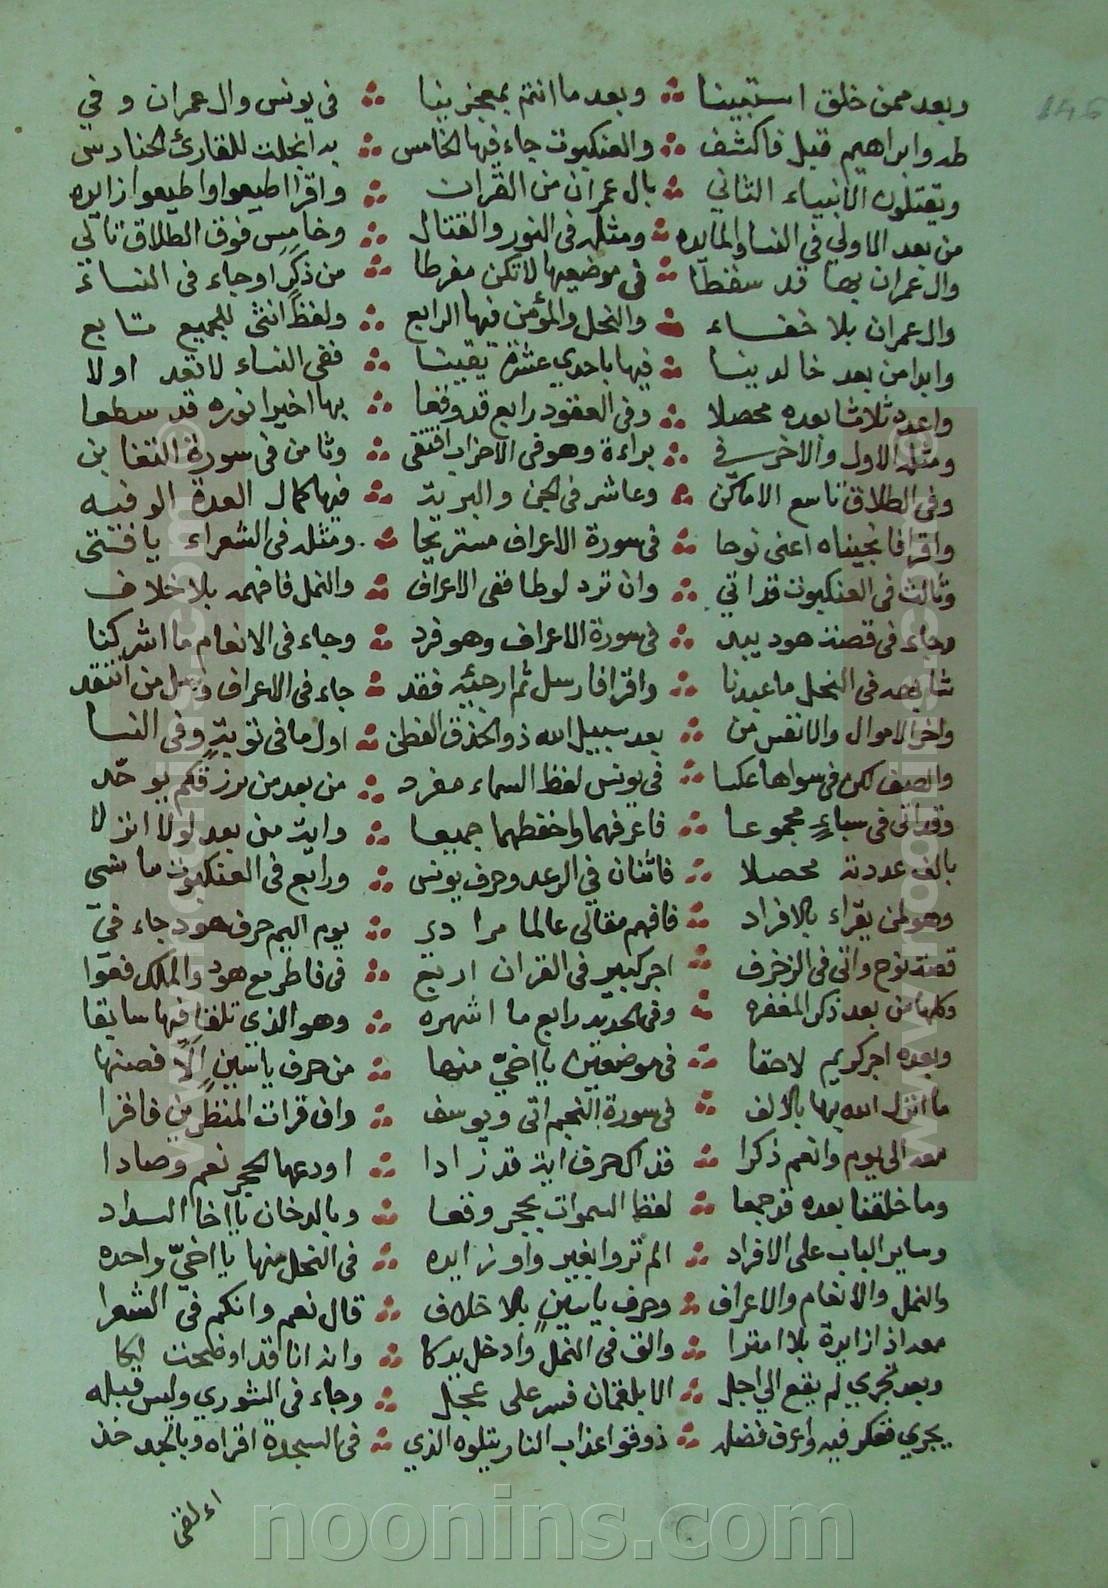 146
وبعد ممن خلق استبينا ∴ وبعد ما انتم بمعجزينا ∴ في يونس وال عمران وفي
طه وابراهيم قبل فاكشف ∴ والعنكبوت جاء فيها الخامس ∴ به انجلت للقارئ الحنادس
ويقتلون الانبياء الثاني ∴ بال عمران من القران ∴ واقرا اطيعوا واطيعوا زايده
من بعد الاولي في النسا والمايده ∴ ومثله في النور والقتال ∴ وخامس فوق الطلاق تالي
وال عمران بها قد سقطا ∴ في موضعيها لا تكن مفرطا ∴ من ذكر او جاء في النساء
وال عمران بلا خفاء ∴ والنحل والمؤمن فيها الرابع ∴ ولفظ انثى للجميع تابع
وابدا من بعد خالدينا ∴ فيها باحدي عشرة يقينا ∴ ففي النساء لا تعد اولا
واعدد ثلاثا بعده محصلا ∴ وفي العقود رابع قد وقعا ∴ بها اخيرا نوره قد سطعا
ومثله الاول والاخر في ∴ براءة وهو في الاحزاب اقتفي ∴ وثامن في سورة التغابن
وفي الطلاق تاسع الاماكن ∴ وعاشر في الجن والبريه ∴ فيها كمال العدة الوفيه
واقرا فانجيناه اعني نوحا ∴ في سورة الاعراف مستريحا ∴ ومثله في الشعراء يا فتى
وثالث في العنكبوت قد اتي ∴ وان ترد لوطا ففي الاعراف ∴ والنمل فافهمه بلا خلاف
وجاء في قصة هود يبد ∴ في سورة الاعراف وهو فرد ∴ وجاء في الانعام ما اشركنا
شابهه في النحل ما عبدنا ∴ واقرا فارسل ثم ارجئه فقد ∴ جاء في الاعراف وسل من انتقد
واخر الاموال والانفس من ∴ بعد سبيل الله ذو الحذق الفطن ∴ اول ما في توبة وفي النسا
والصف لكن في سواها عكسا ∴ في يونس لفظ السماء مفرد ∴ من بعد من يرزقكم يوحد
وقد اتى في سباء مجموعا ∴ فاعرفهما واحفظهما جميعا ∴ واية من بعد لولا انزلا
بالف عددته محصلا ∴ فاثنان في الرعد وحرف يونس ∴ ورابع في العنكبوت ما نسي
وهو لمن يقراء بالافراد ∴ فافهم مقالي عالما مرادي ∴ يوم اليم حرف هود جاء في
قصة نوح واتى في الزخرف ∴ اجر كبير في القران اربع ∴ في فاطر مع هود والملك فعوا
وكلها من بعد ذكر المغفره ∴ وفي الحديد رابع ما اشهره ∴ وهو الذي تلفا فيها سابقا
وبعده اجر كريم لاحقا ∴ في موضعين يا اخي منها ∴ من حرف ياسين الا فصنها
ما انزل الله بها بالالف ∴ في سورة النجم اتى ويوسف ∴ وان قرات المنظرين فاقرا
بعد الى يوم وانعم ذكرا ∴ فذاك حرف اية قد زادا ∴ اودعها الحجر نعم وصادا
وما خلقنا بعده قد جمعا ∴ لفظ السموات بحجر وقعا ∴ وبالدخان يا اخا السداد
وساير الباب على الافراد ∴ الم تروا بغير واو زايده ∴ في النحل منها يا اخي واحده
والنمل والانعام والاعراف ∴ وحرف ياسين بلا خلاف ∴ قال نعم وانكم في الشعرا
بعد اذا زايدة بلا امترا ∴ والق في النمل وادخل يدكا ∴ وانه انا قد اوضحت لكا
وبعد تجري لم يقع الي اجل ∴ الا بلقمان فسر على عجل ∴ وجاء في الشوري وليس قبله
يجري ففكر فيه واعرف فضله ∴ ذوقوا عذاب النار يتلوه الذي ∴ في السجدة اقراه وبالجد خذ
noonins.com
www.noonins.com
www.noonins.com